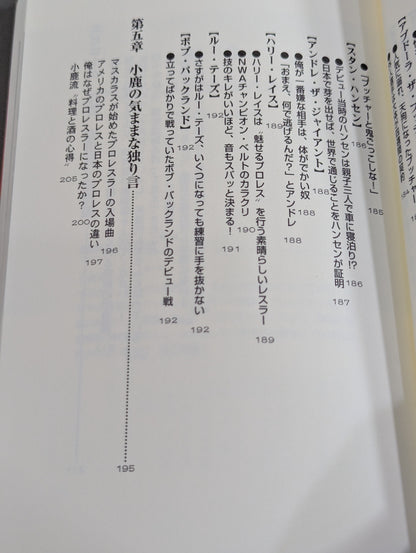 【アブドーラ・ザ・ブッチャー】
●「ブッチャーと鬼ごっこしなー」 185
【スタン・ハンセン】 186
●デビュー当時のハンセンは親子三人で車に寝泊り!? 186
●日本で芽を出せば、世界で通じることをハンセンが証明 187
【アンドレ・ザ・ジャイアント】 188
●俺が一番嫌な相手は、体がでかい奴 188
●「おまえ、何で逃げるんだ？」とアンドレ 188
【ハリー・レイス】 189
●ハリー・レイスは〝魅せるプロレス〟を行う素晴らしいレスラー 189
●NWAチャンピオン・ベルトのカラクリ 190
●技のキレがいいほど、音もスパッと決まる！ 191
【ルー・テーズ】 192
●さすがはルー・テーズ、いくつになっても練習に手を抜かない 192
【ボブ・バックランド】 192
●立ってばかりで戦っていたボブ・バックランドのデビュー戦 192
第五章 小鹿の気ままな独り言 195
マスカラスが始めたプロレスラーの入場曲 196
アメリカのプロレスと日本のプロレスの違い 197
俺はなぜプロレスラーになったか？ 200
小鹿流〝料理と酒の心得〟 205